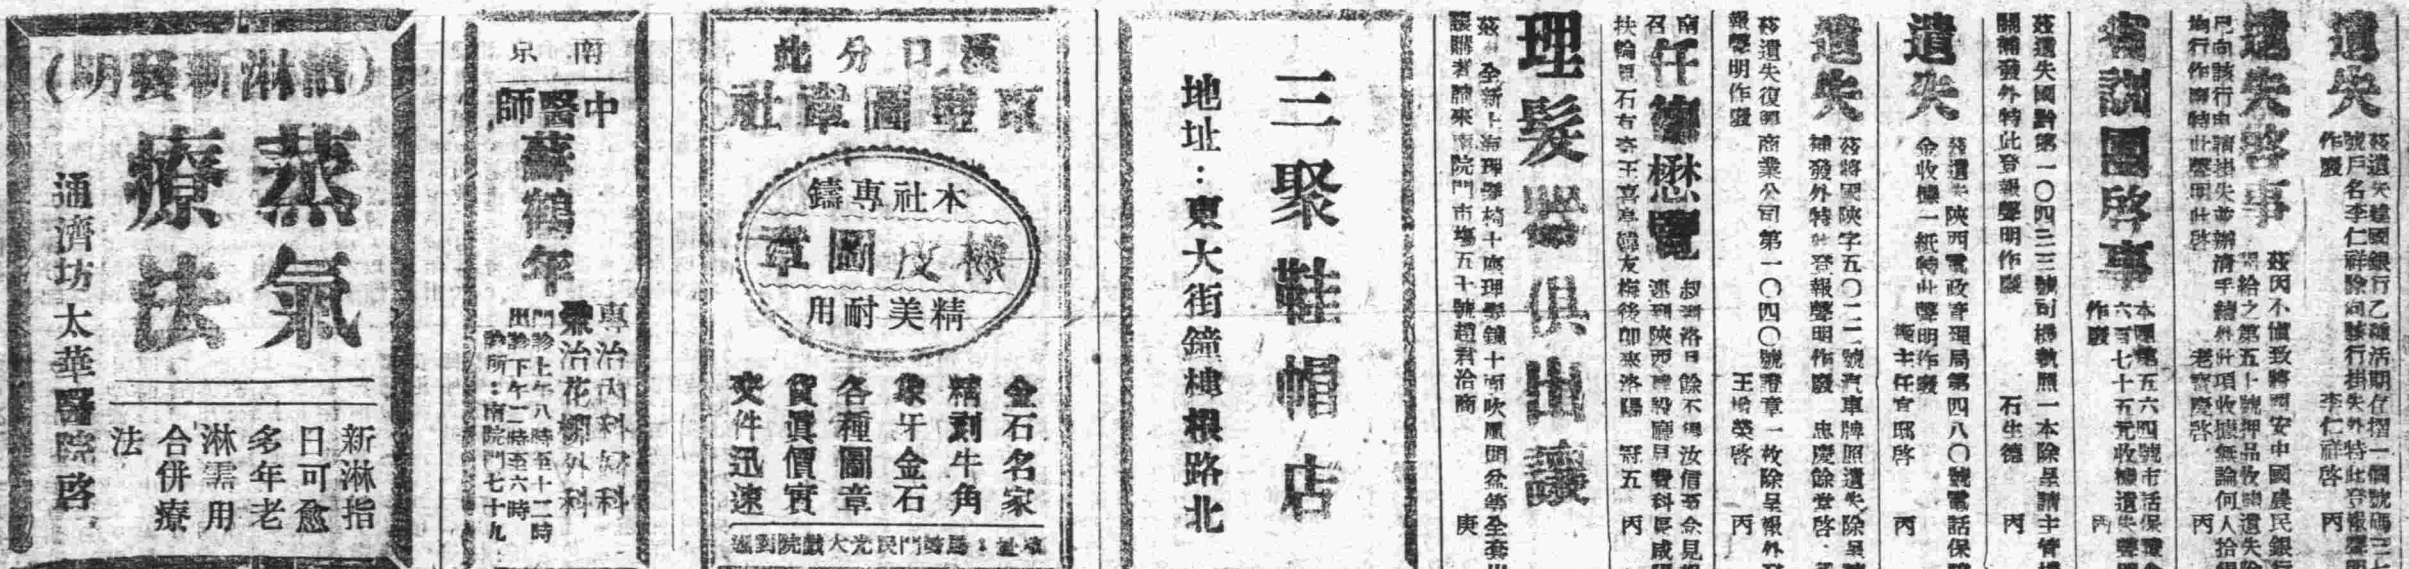 遺失
茲遺失建國銀行乙種活期存摺一個號碼三七
號戶名李仁祥除向該行掛失外特此登報聲明
作廢 李仁祥啓 丙
遺失啓事
茲因不慎致將西安中國農民銀行
開給之第五十號押品收據遺失除
已向該行申請掛失並辦清手續外此項收據無論何人拾得
均行作廢特此聲明此啓 老寶慶啓 丙
省訓團啓事
本團第五六四號市活保證金
六百七十五元收據遺失聲明
作廢 丙
茲遺失國黔第一〇四三三號司機執照一本除呈請主管機
關補發外特此登報聲明作廢 石生德 丙
遺失
茲遺失陝西電政管理局第四八〇號電話保證
金收據一紙特此聲明作廢
遺失
茲將國陝字五〇二二一號汽車牌照遺失除呈請
補發外特此登報聲明作廢 忠慶餘堂啓
茲遺失復興商業公司第一〇四〇號證章一枚除呈報外登
報聲明作廢 丙
仵鄉懋覽
叔到洛日餘不得汝信至念見報
速到陝西建設廳
南召
扶輪 石有 王喜亭韓友梅後即來洛陽 冠五 丙
理髮器俱出讓
茲有全新上海理髮椅十座理髮鏡十面吹風問盆等全套出
讓購者請來南院門市場五十號趙君洽商 庚
三聚鞋帽店
地址：東大街鐘樓根路北
漢口分此
東壁圖章社
本社專鑄
橡皮圖章
精美耐用
金石名家
精刻牛角
象牙金石
各種圖章
貨眞價實
交件迅速
南京
中醫師
蘇鶴年
專治內科婦科
兼治花柳外科
門診上午八時至十二時
出診下午二時至六時
診所：南院門七十九
（治淋新發明）
蒸氣
療法
新淋指
日可愈
多年老
淋需用
合併療
法
通濟坊太華醫院啓